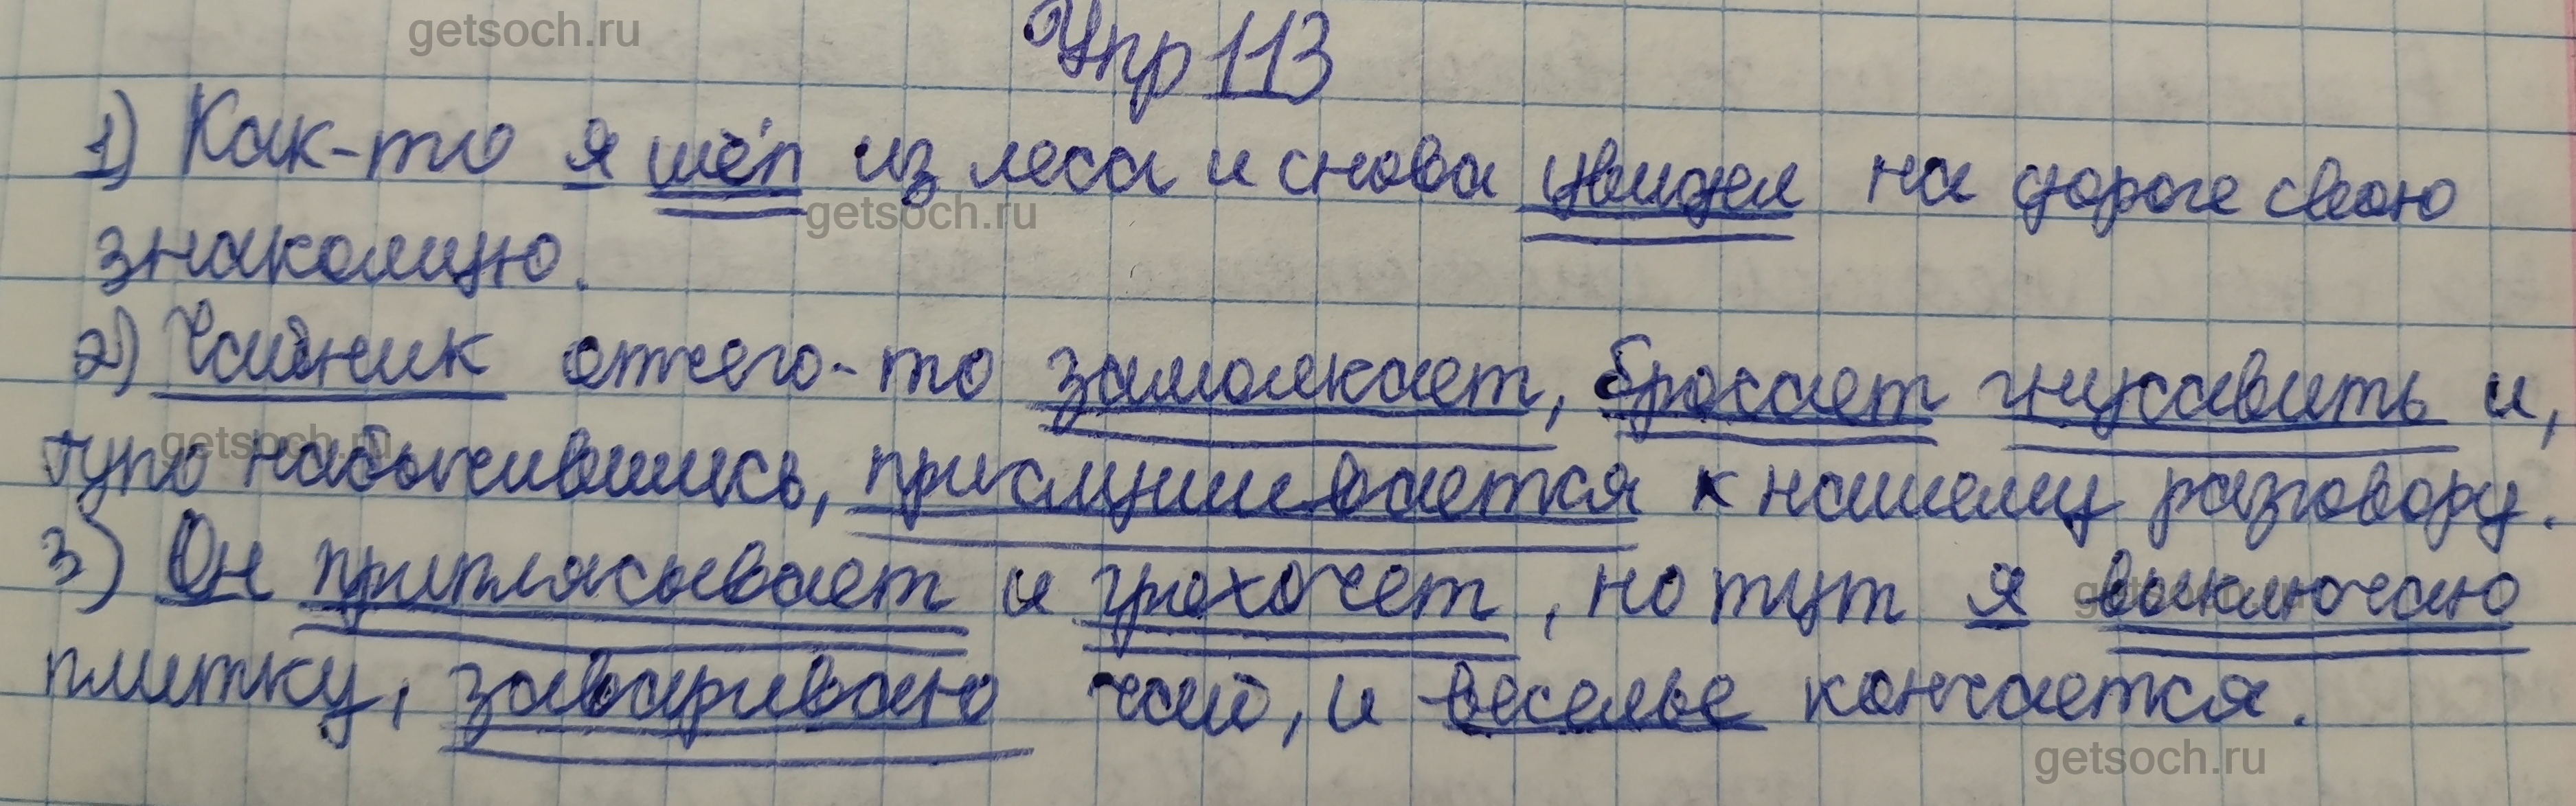 getsoch.ru
Упр 113
1) Как-то я шёл из леса и снова увидел на дороге свою
getsoch.ru
знакомую.
2) Чайник отчего-то замолкает, бросает гнусавить и,
getsoch.ru
тупо набычившись, прислушивается к нашему разговору.
3) Он приплясывает и грохочет, но тут я выключаю
getsoch.ru
плитку, завариваю чай, и веселье кончается.
getsoch.ru